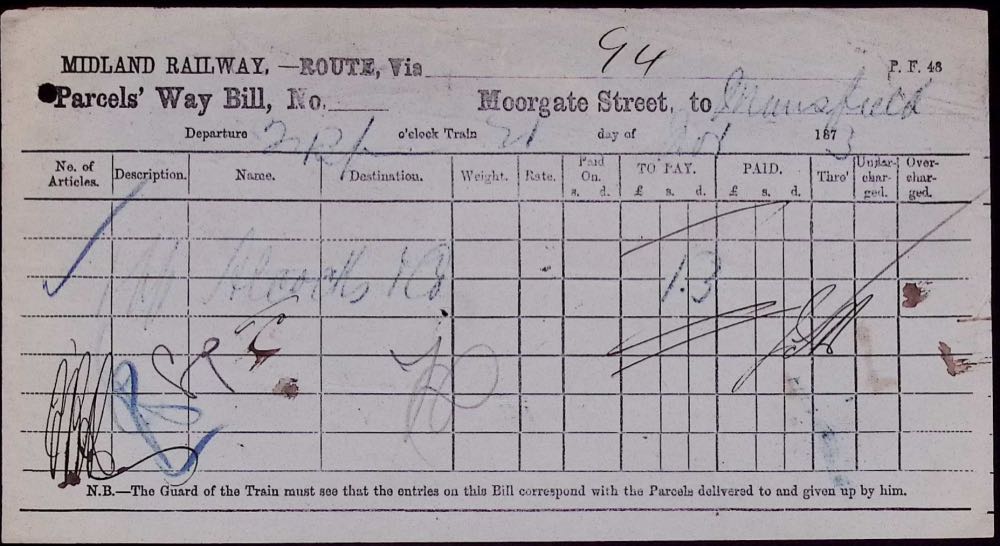 94
MIDLAND RAILWAY, —ROUTE, Via
P. F. 48
Parcels' Way Bill, No. Moorgate Street, to Mansfield
Departure o'clock Train 21 day of 187 3
No. of Articles. Description. Name. Destination. Weight. Rate. Paid On. s. d. TO PAY. £ s. d. PAID. £ s. d. Thro' Under-char-ged. Over-char-ged.
1.3
N.B.—The Guard of the Train must see that the entries on this Bill correspond with the Parcels delivered to and given up by him.